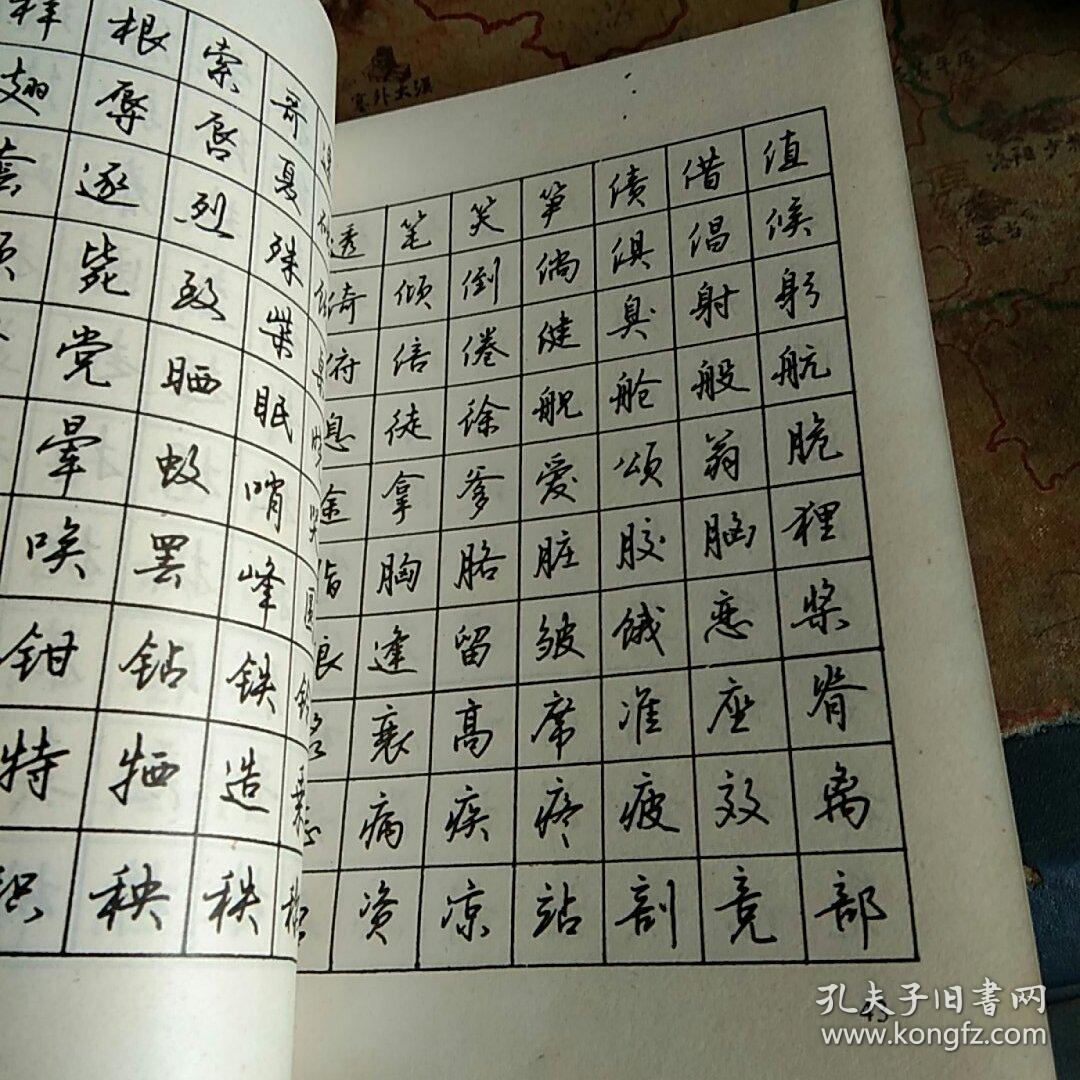 样 根 索 哥
翅 辱 唇 夏
套 逐 烈 殊
毙 致 柴
党 晒 眠
晕 蚊 哨
唉 罢 峰
钳 钻 铁
特 牺 造 乘
积 秧 秩 称
透 笔 笑 笋 债 借 值
倚 倾 倒 倘 俱 倡 候
俯 倍 倦 健 臭 射 躬
息 徒 徐 舰 舱 般 航
途 拿 爹 爱 颂 翁 脆
脂 胸 胳 脏 胶 脑 狸
狼 逢 留 皱 饿 恋 桨
衰 高 席 准 座 脊
病 疾 疼 疲 效 离
资 凉 站 剖 竞 部
43
塞外大漠
孔夫子旧書网
www.kongfz.com